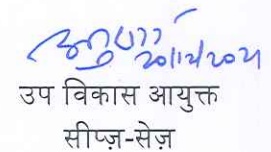 20/12/2021
उप विकास आयुक्त
सीप्ज़-सेज़